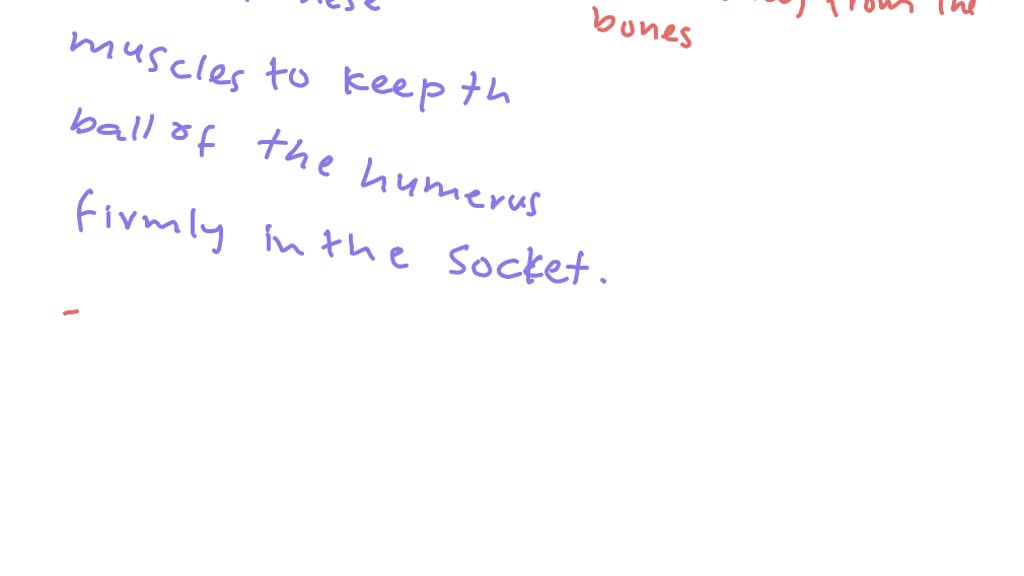 from the
bones
muscles to keep th
ball of the humerus
firmly in the socket.
-